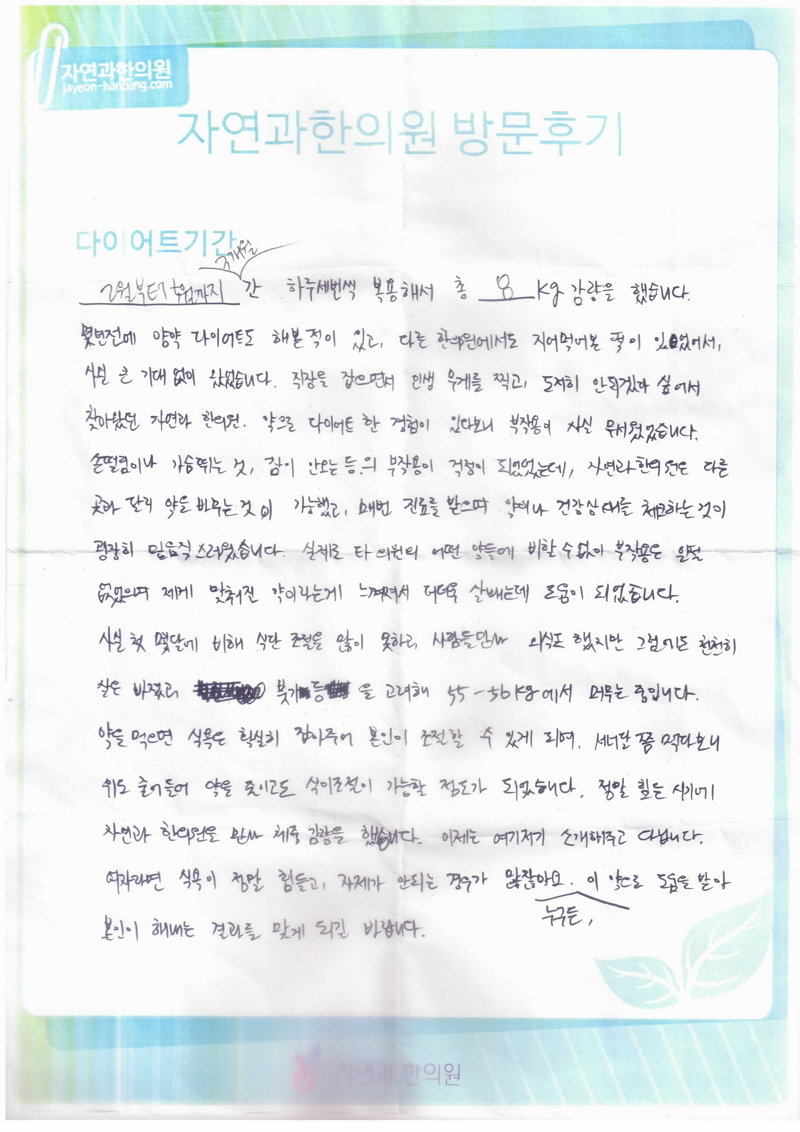 자연과한의원
jayeon-hanbang.com
자연과한의원 방문후기
다이어트기간
2월부터 까지 간 하루세번씩 복용해서 총 8 kg 감량을 했습니다.
개월
몇년전에 양약 다이어트도 해본 적이 있고, 다른 한의원에서도 지어먹어본 적이 있었어서,
사실 큰 기대 없이 왔었습니다. 직장을 잡으면서 인생 무게를 찍고, 도저히 안되겠다 싶어서
찾아왔던 자연과 한의원. 약으로 다이어트 한 경험이 있다보니 부작용이 사실 무서웠었습니다.
손떨림이나 가슴뛰는 것, 잠이 안오는 등의 부작용이 걱정이 되었었는데, 자연과한의원은 다른
곳과 달리 약을 바꾸는 것이 가능했고, 매번 진료를 받으며 약이나 건강상태를 체크하는 것이
굉장히 믿음직스러웠습니다. 실제로 타 의원의 어떤 약들에 비할 수 없이 부작용은 일절
없었으며 제게 맞춰진 약이라는게 느껴져서 더더욱 살빼는데 도움이 되었습니다.
사실 첫 몇달에 비해 식단 조절을 많이 못하고, 사람들만나 외식도 했지만 그럼에도 천천히
살은 빠졌고, 붓기 등을 고려해 55-56kg에서 머무는 중입니다.
약을 먹으면 식욕은 확실히 잡아주어 본인이 조절할 수 있게 되며, 세네달 쯤 먹다보니
위도 줄어들어 약을 줄이고도 식이조절이 가능할 정도가 되었습니다. 정말 힘든 시기에
자연과 한의원을 만나 체중 감량을 했습니다. 이제는 여기저기 소개해주고 다닙니다.
여자라면 식욕이 정말 힘들고, 자제가 안되는 경우가 많잖아요. 이 약으로 도움을 받아
누구든,
본인이 해내는 결과를 맞게 되길 바랍니다.
자연과 한의원